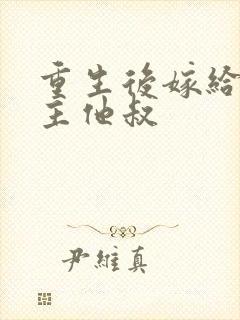 重生後嫁給
主他叔
尹維真